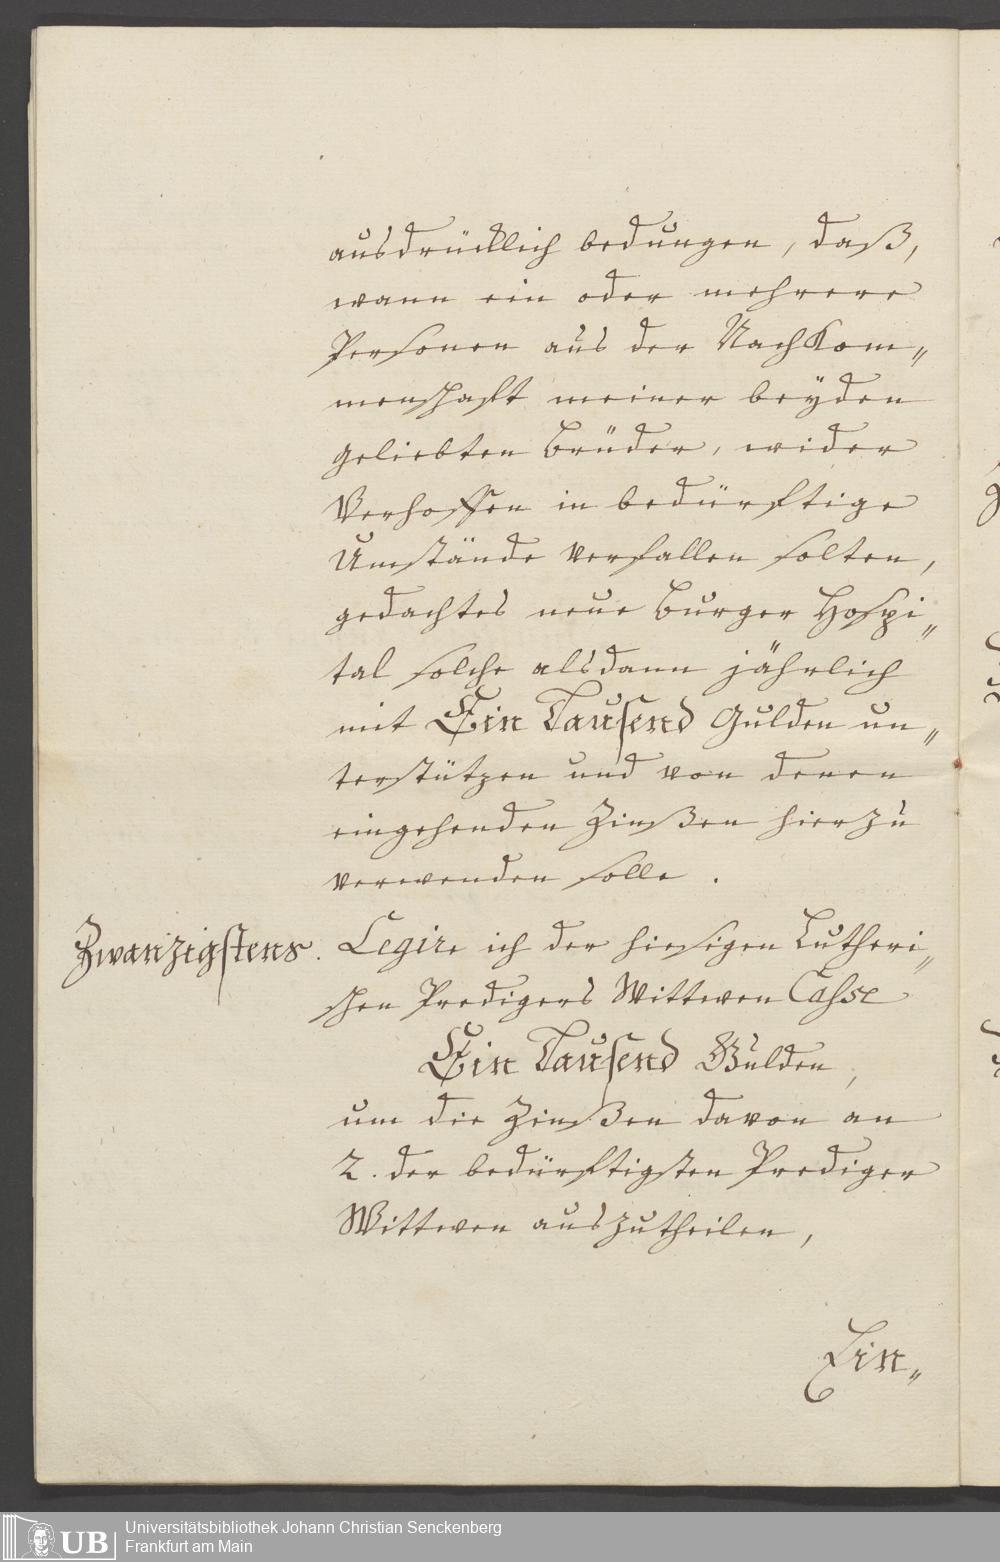 ausdrücklich bedungen, daß,
wann ein oder mehrere
Personen aus der Nachkom„
menschaft meiner beyden
geliebten Brüder, wider
Verhoffen in bedürftige
Umstände verfallen solten,
gedachtes neue Burger Hospi„
tal solche alsdann jährlich
mit Ein Tausend Gulden un„
terstützen und von denen
eingehenden Zinßen hierzu
verwenden solle.
Zwanzigstens. Legire ich der hiesigen Lutheri„
schen Predigers Wittwen Casse
Ein Tausend Gulden,
um die Zinßen davon an
2. der bedürftigsten Prediger
Wittwen auszutheilen,
Ein„
UB
Universitätsbibliothek Johann Christian Senckenberg
Frankfurt am Main